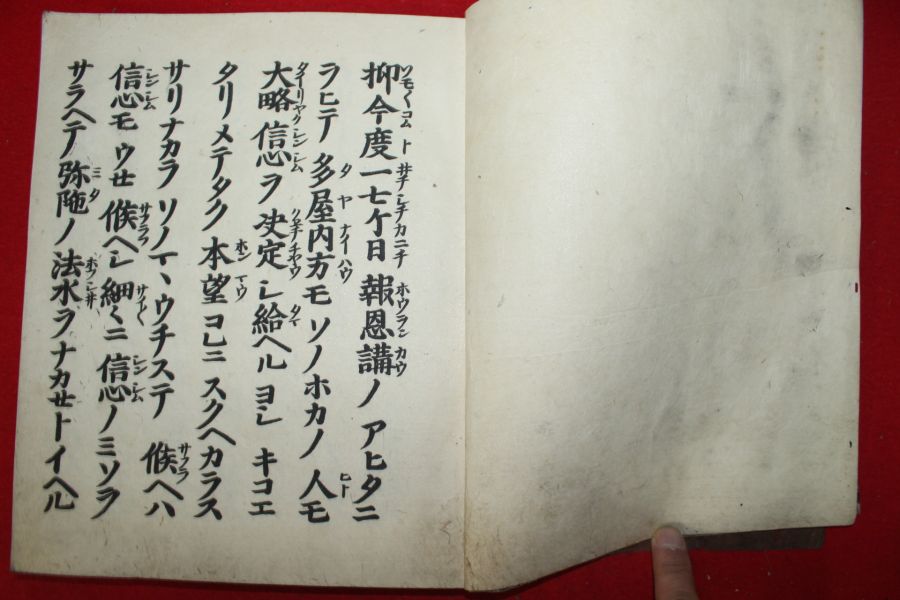 抑今度一七ケ日報恩講ノアヒタニ
ヲヒテ多屋内方モソノホカノ人モ
大略信心ヲ决定シ給ヘルヨシキコエ
タリメテタク本望コレニスクヘカラス
サリナカラソノマヽウチステ候ヘハ
信心モウセ候ヘシ細々ニ信心ノミソヲ
サラヘテ弥陁ノ法水ヲナカセトイヘル